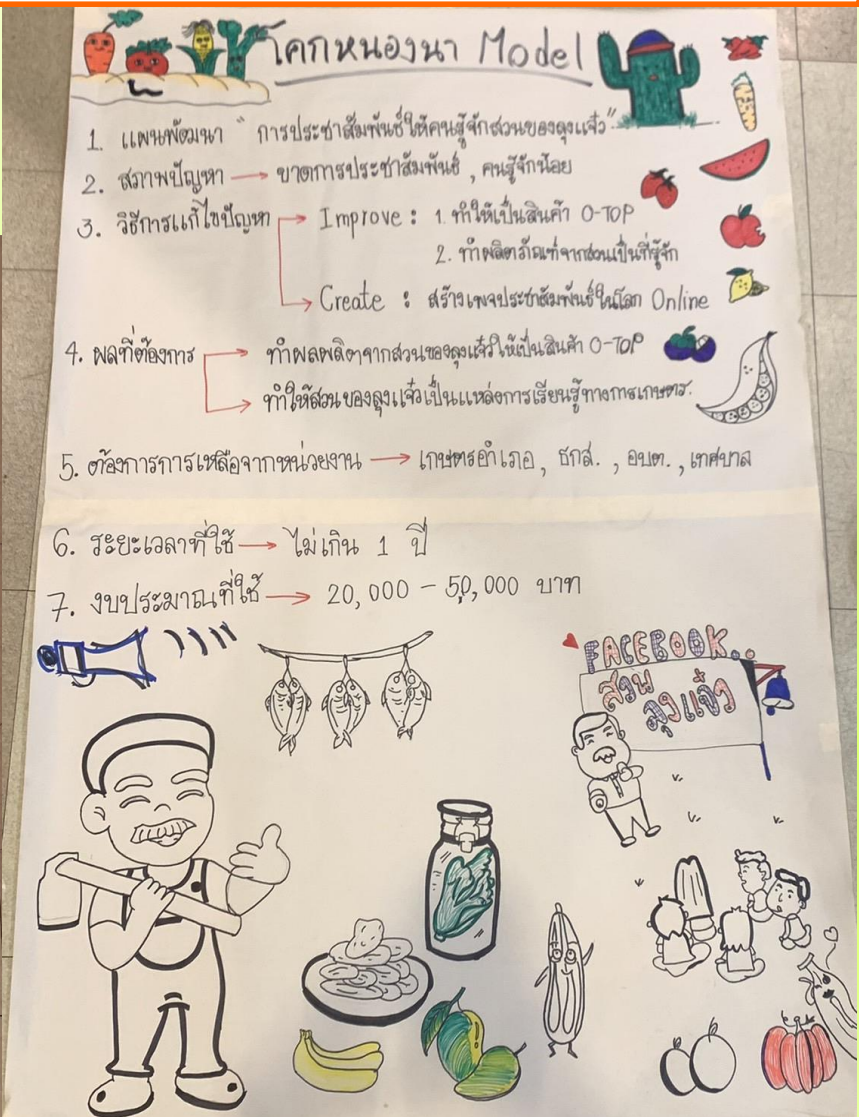 โคกหนองนา Model
1. แผนพัฒนา " การประชาสัมพันธ์ให้คนรู้จักสวนของลุงแจ๋ว"
2. สภาพปัญหา → ขาดการประชาสัมพันธ์ , คนรู้จักน้อย
3. วิธีการแก้ไขปัญหา → Improve : 1. ทำให้เป็นสินค้า O-TOP
2. ทำผลิตภัณฑ์จากสวนเป็นที่รู้จัก
→ Create : สร้างเพจประชาสัมพันธ์ในโลก Online
4. ผลที่ต้องการ → ทำผลผลิตจากสวนของลุงแจ๋วให้เป็นสินค้า O-TOP
→ ทำให้สวนของลุงแจ๋วเป็นแหล่งการเรียนรู้ทางการเกษตร.
5. ต้องการการเหลือจากหน่วยงาน → เกษตรอำเภอ, ธกส. , อบต. , เทศบาล
6. ระยะเวลาที่ใช้ → ไม่เกิน 1 ปี
7. งบประมาณที่ใช้ → 20,000 - 50,000 บาท
FACEBOOK..
สวน
ลุงแจ๋ว